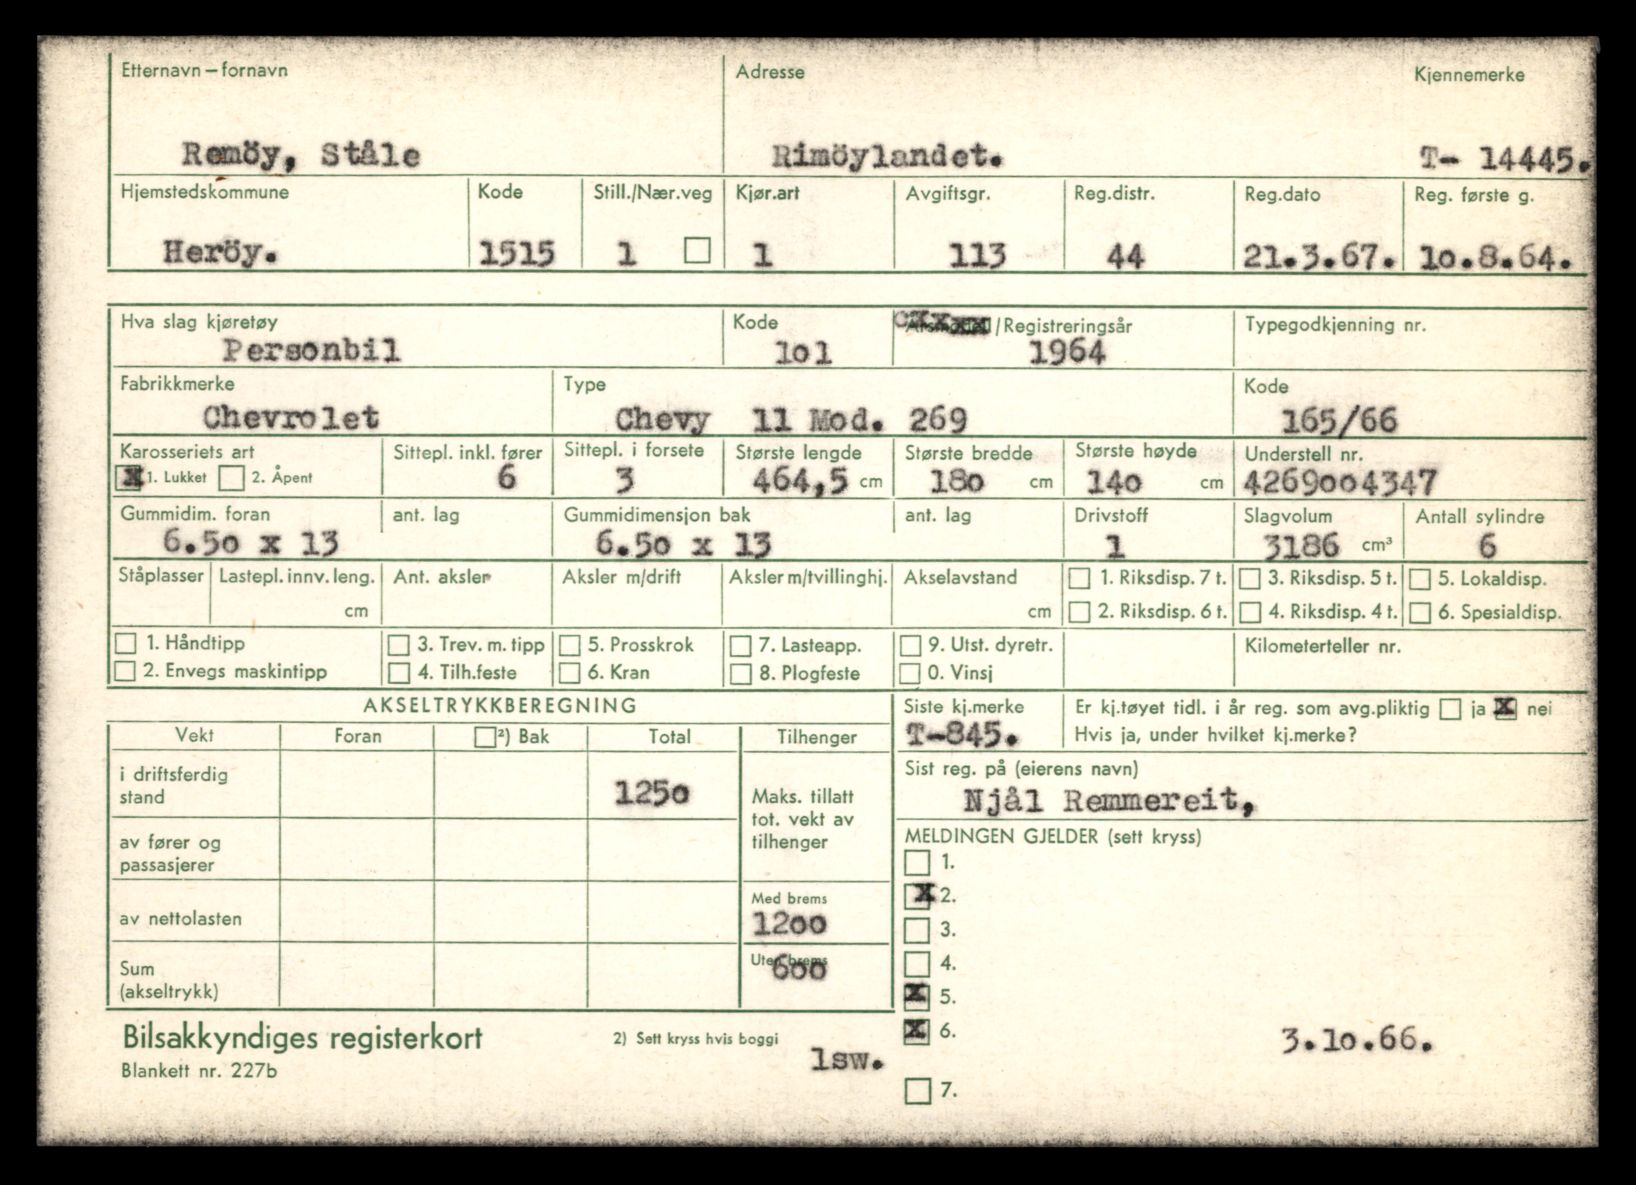 Etternavn – fornavn Adresse Kjennemerke
Remöy, Ståle Rimöylandet. T- 14445.
Hjemstedskommune Kode Still./Nær.veg Kjør.art Avgiftsgr. Reg.distr. Reg.dato Reg. første g.
Heröy. 1515 1 1 113 44 21.3.67. 10.8.64.
Hva slag kjøretøy Kode /Registreringsår Typegodkjenning nr.
Personbil 101 1964
Fabrikkmerke Type Kode
Chevrolet Chevy 11 Mod. 269 165/66
Karosseriets art Sittepl. inkl. fører Sittepl. i forsete Største lengde Største bredde Største høyde Understell nr.
x 1. Lukket 2. Åpent 6 3 464,5 cm 180 cm 140 cm 4269004347
Gummidim. foran ant. lag Gummidimensjon bak ant. lag Drivstoff Slagvolum Antall sylindre
6.50 x 13 6.50 x 13 1 3186 cm³ 6
Ståplasser Lastepl. innv. leng. Ant. aksler Aksler m/drift Aksler m/tvillinghj. Akselavstand 1. Riksdisp. 7 t. 3. Riksdisp. 5 t. 5. Lokaldisp.
cm cm 2. Riksdisp. 6 t. 4. Riksdisp. 4 t. 6. Spesialdisp.
1. Håndtipp 3. Trev. m. tipp 5. Prosskrok 7. Lasteapp. 9. Utst. dyretr. Kilometerteller nr.
2. Envegs maskintipp 4. Tilh.feste 6. Kran 8. Plogfeste 0. Vinsj
AKSELTRYKKBEREGNING Siste kj.merke Er kj.tøyet tidl. i år reg. som avg.pliktig ja x nei
Vekt Foran ²) Bak Total Tilhenger T-845. Hvis ja, under hvilket kj.merke?
i driftsferdig stand 1250 Maks. tillatt tot. vekt av tilhenger
Sist reg. på (eierens navn)
Njål Remmereit,
av fører og passasjerer
MELDINGEN GJELDER (sett kryss)
1.
x 2.
av nettolasten Med brems
1200
3.
Sum (akseltrykk) Uten brems
600
4.
x 5.
x 6. 3.10.66.
Bilsakkyndiges registerkort 2) Sett kryss hvis boggi
lsw.
Blankett nr. 227b
7.